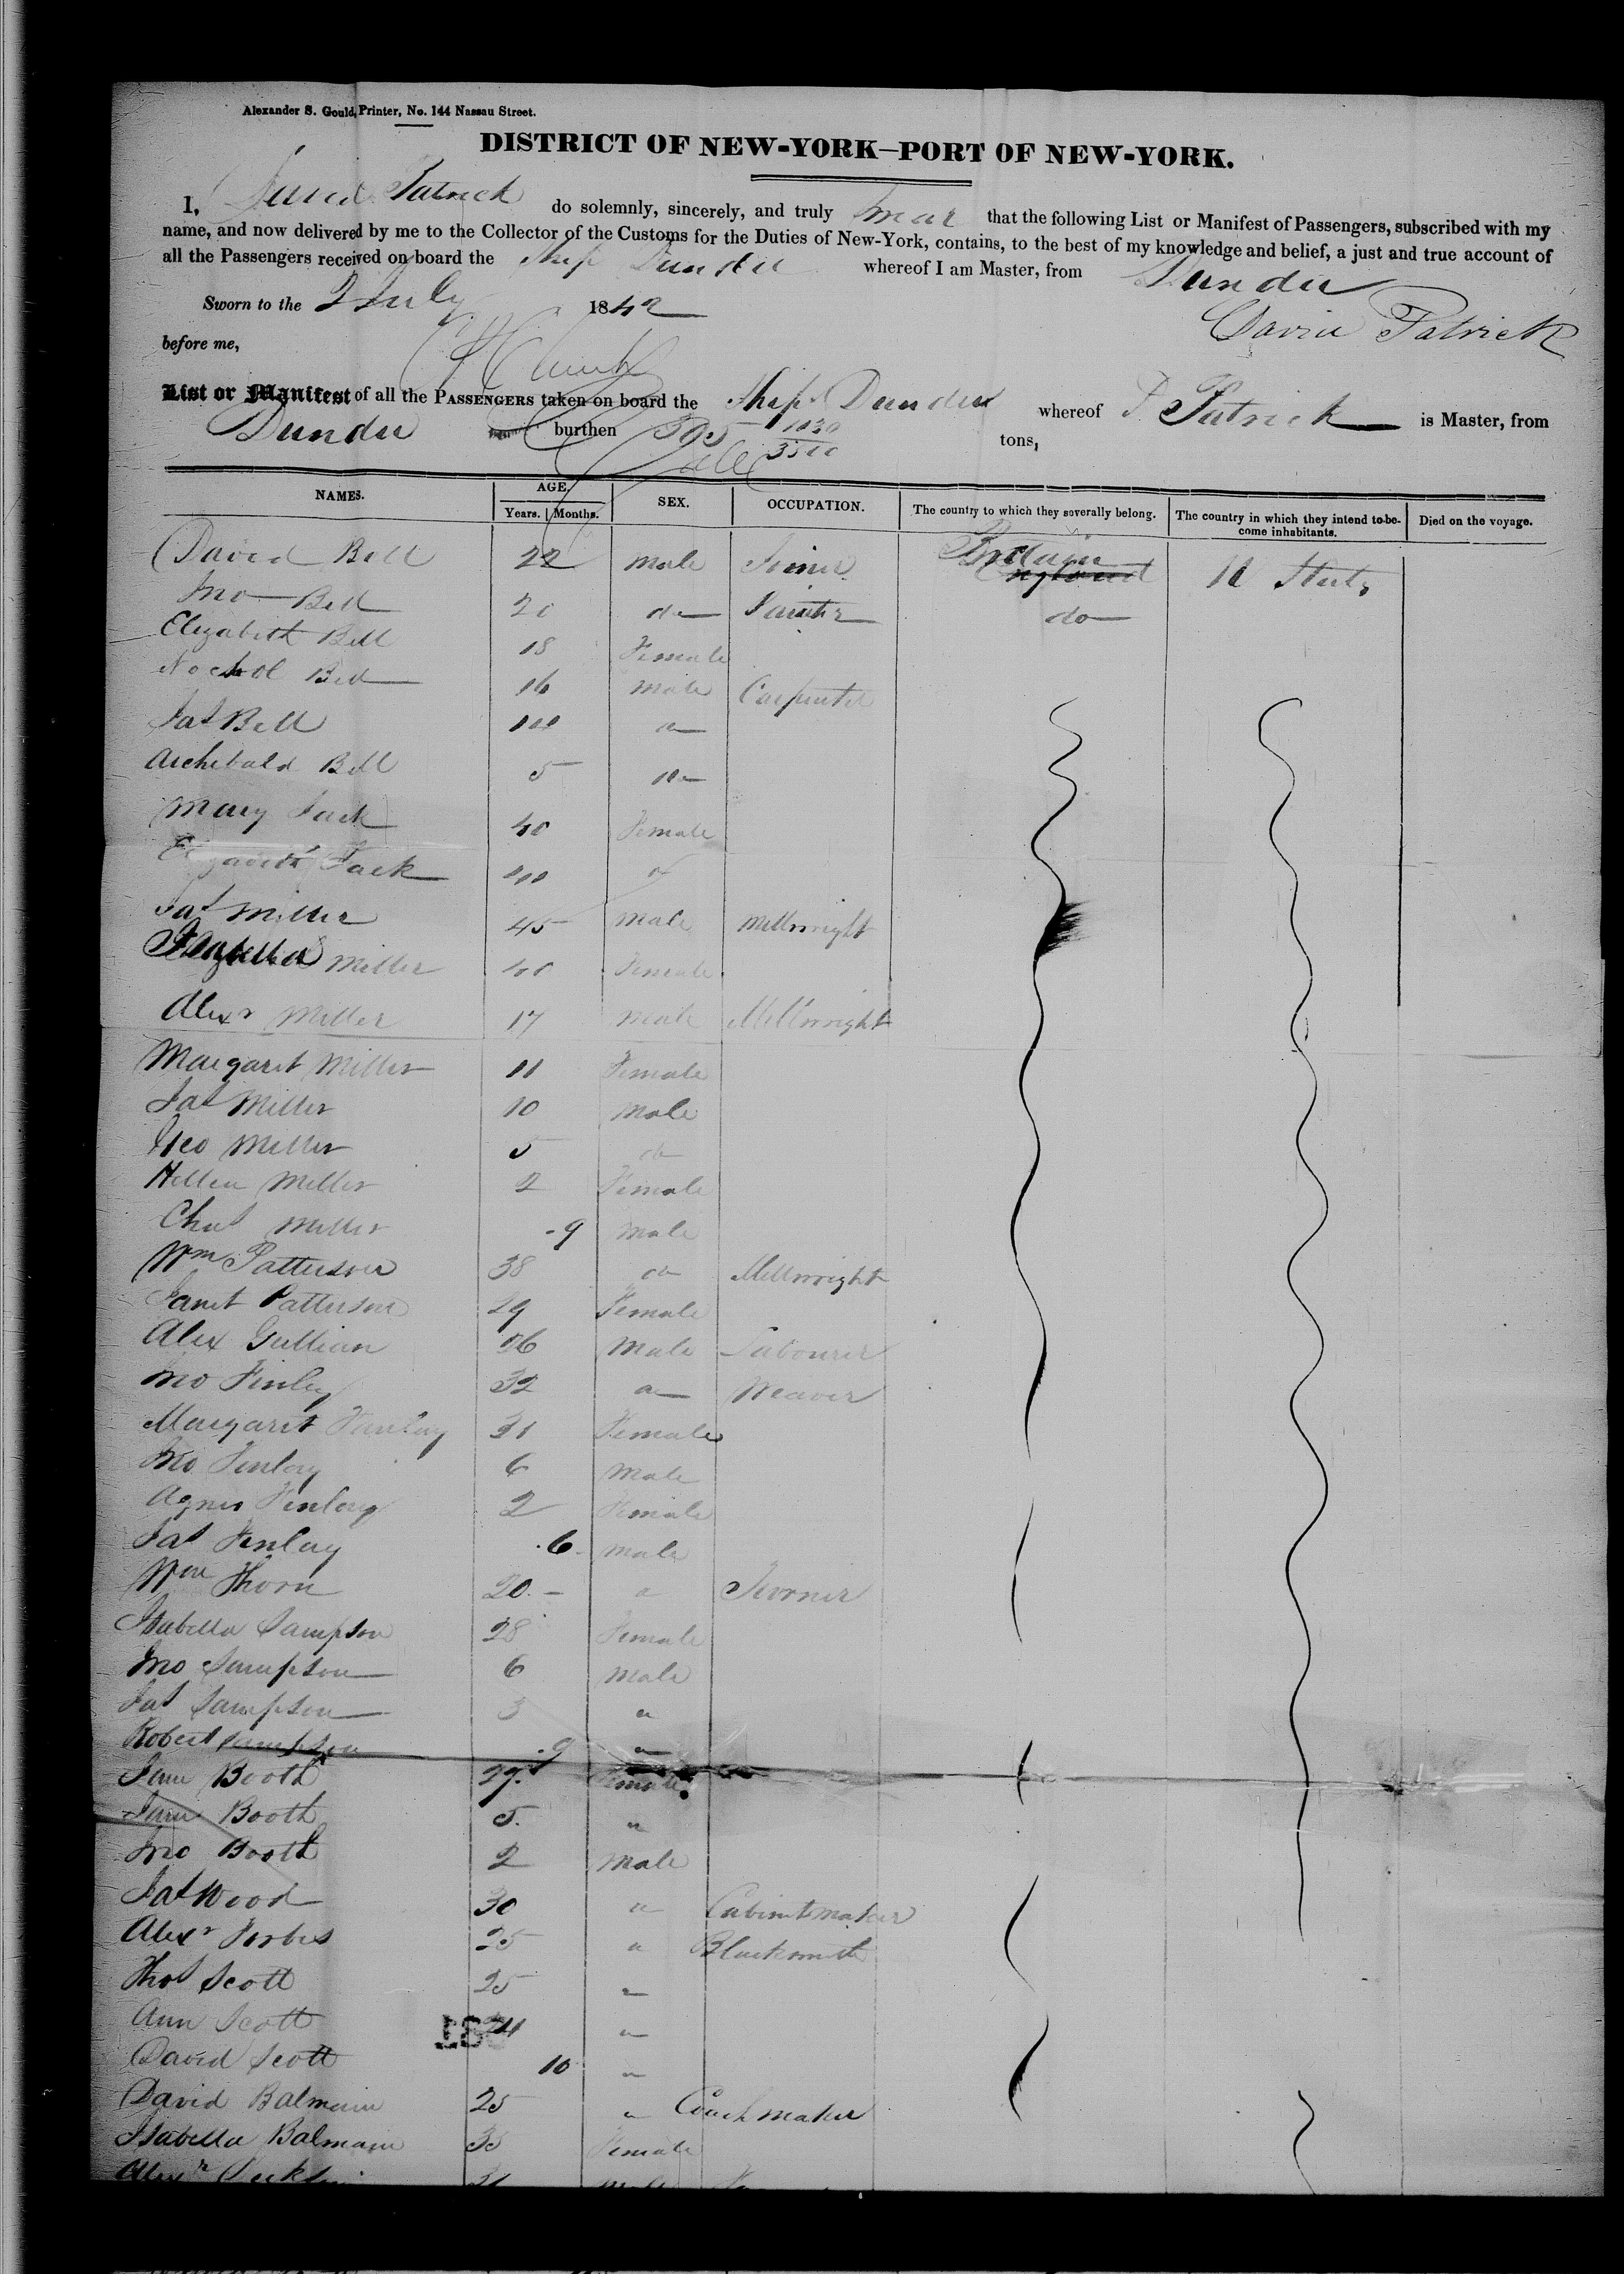 Alexander S. Gould, Printer, No. 144 Nassau Street.
DISTRICT OF NEW-YORK—PORT OF NEW-YORK.
I, David Patrick do solemnly, sincerely, and truly swear that the following List or Manifest of Passengers, subscribed with my
name, and now delivered by me to the Collector of the Customs for the Duties of New-York, contains, to the best of my knowledge and belief, a just and true account of
all the Passengers received on board the Ship Dundee whereof I am Master, from Dundee
Sworn to the 2 July 1842
David Patrick
before me,
List or Manifest of all the PASSENGERS taken on board the Ship Dundee whereof D. Patrick is Master, from
Dundee burthen 395 tons,
NAMES. AGE. SEX. OCCUPATION. The country to which they severally belong. The country in which they intend to become inhabitants. Died on the voyage.
Years. Months.
David Bell 22 male Joiner Britain U States
Jno Bell 20 do Painter do
Elizabeth Bell 18 Female
Bell 16 male Carpenter
Jas Bell
Archibald Bell 5 do
Mary Jack 40 Female
Elizabeth Jack
Jas Miller 45 male Millwright
Miller 40 Female
Alexr Miller 17 male Millwright
Margaret Miller 11 Female
Jas Miller 10 male
Geo Miller 5 do
Hellen Miller 2 Female
Chas Miller 9 male
Wm Patterson 38 do Millwright
Janet Patterson 29 Female
Alex Gullian 36 male Labourer
Jno Finlay 32 do Weaver
Margaret Finlay 31 Female
Jno Finlay 6 male
Agnes Finlay 2 Female
Jas Finlay 6 male
Wm Thorn 20 " Joiner
Isabella Sampson 28 Female
Jno Sampson 6 male
Jas Sampson 3 "
Robert Sampson 9 "
Jane Booth 27 Female
Jane Booth 5 "
Jno Booth 2 male
Jas Wood 30 " Cabinetmaker
Alexr Forbes 25 " Blacksmith
Thos Scott 25 "
Ann Scott 24 "
David Scott 10 "
David Balmain 25 " Coachmaker
Isabella Balmain 35 Female
Alexr